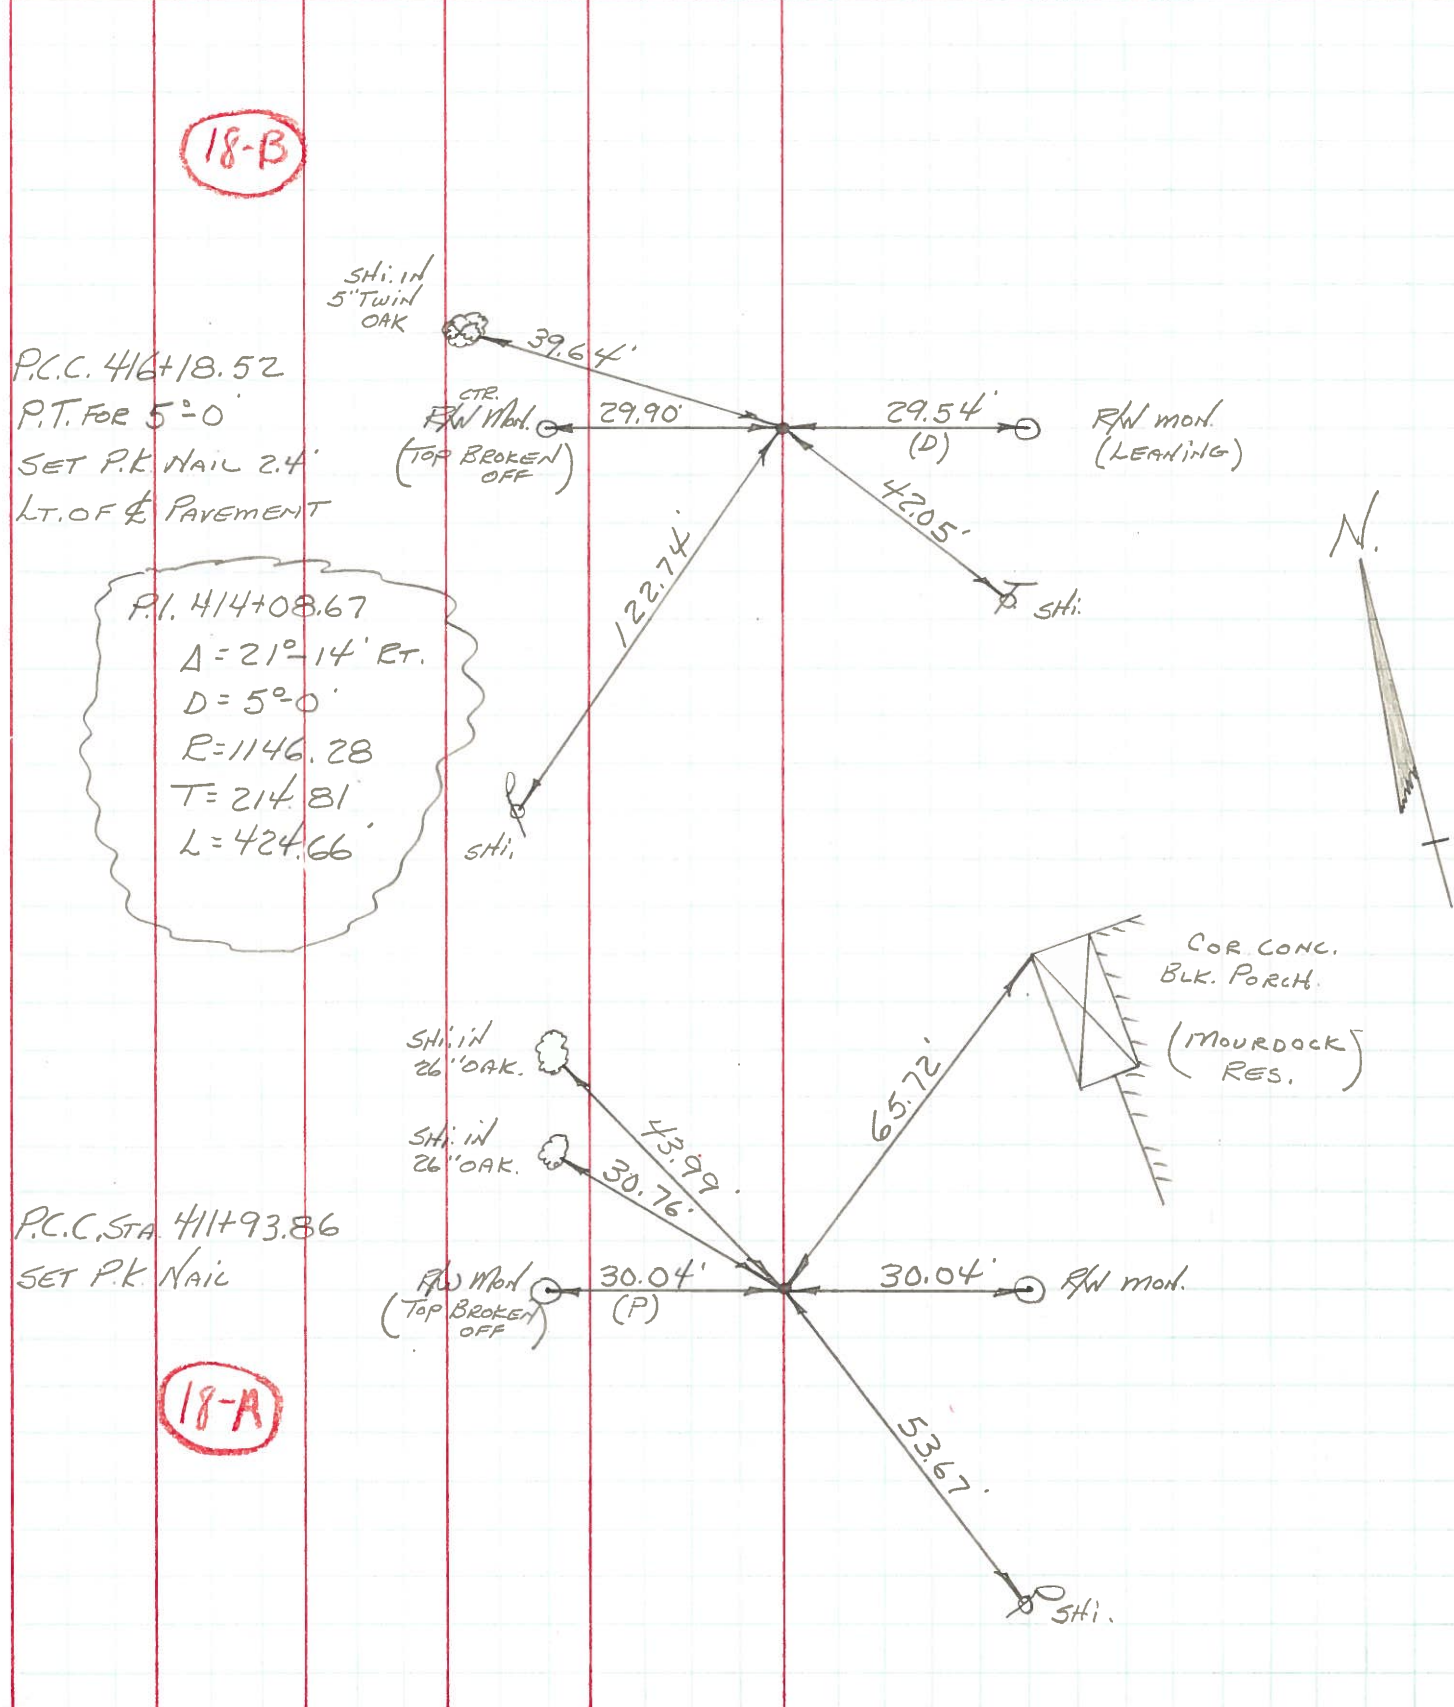 18-B
SHi. IN
5" TWIN
OAK
39.64'
P.C.C. 416+18.52
P.T. FOR 5°-0'
SET P.K. NAIL 2.4'
LT. OF ℄ PAVEMENT
CTR.
R/W MON.
(TOP BROKEN
OFF)
29.90'
29.54'
(D)
R/W MON.
(LEANING)
42.05'
SHi.
122.74'
SHi.
N.
P.I. 414+08.67
Δ = 21°-14' RT.
D = 5°-0'
R = 1146.28
T = 214.81
L = 424.66'
COR. CONC.
BLK. PORCH.
(MOURDOCK
RES.)
65.72'
SHi. IN
26" OAK.
43.99'
SHi. IN
26" OAK.
30.76'
P.C.C. STA. 411+93.86
SET P.K. NAIL
R/W MON.
(TOP BROKEN
OFF)
30.04'
(P)
30.04'
R/W MON.
18-A
53.67'
SHi.